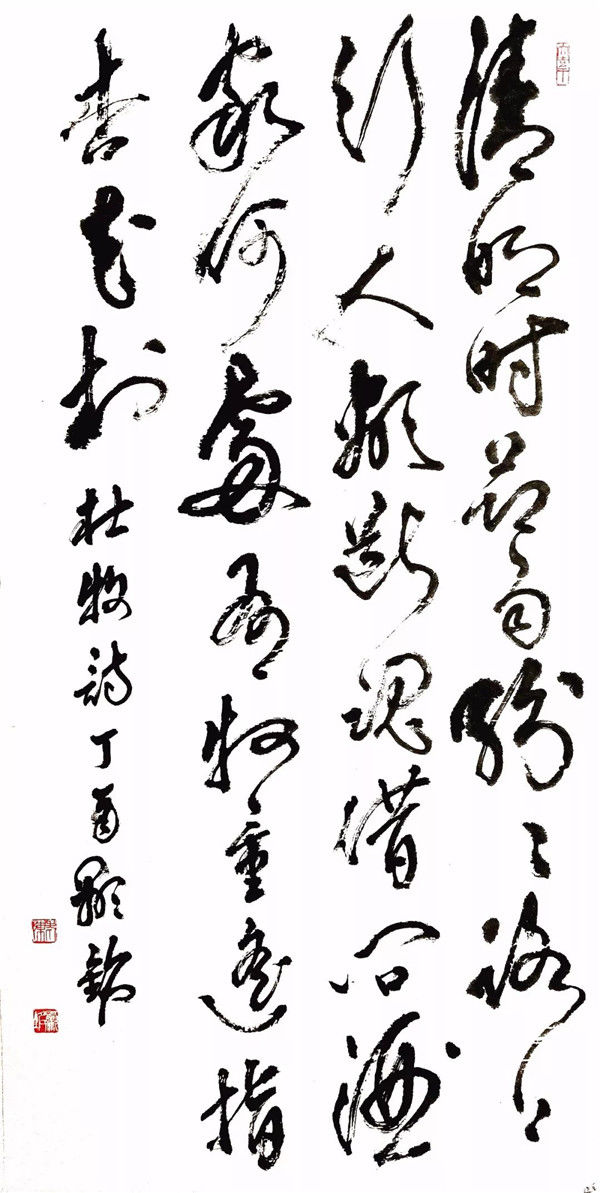 清明时节雨纷〻路上
行人欲断魂借问酒
家何處有牧童遥指
杏花村 杜牧詩 丁酉